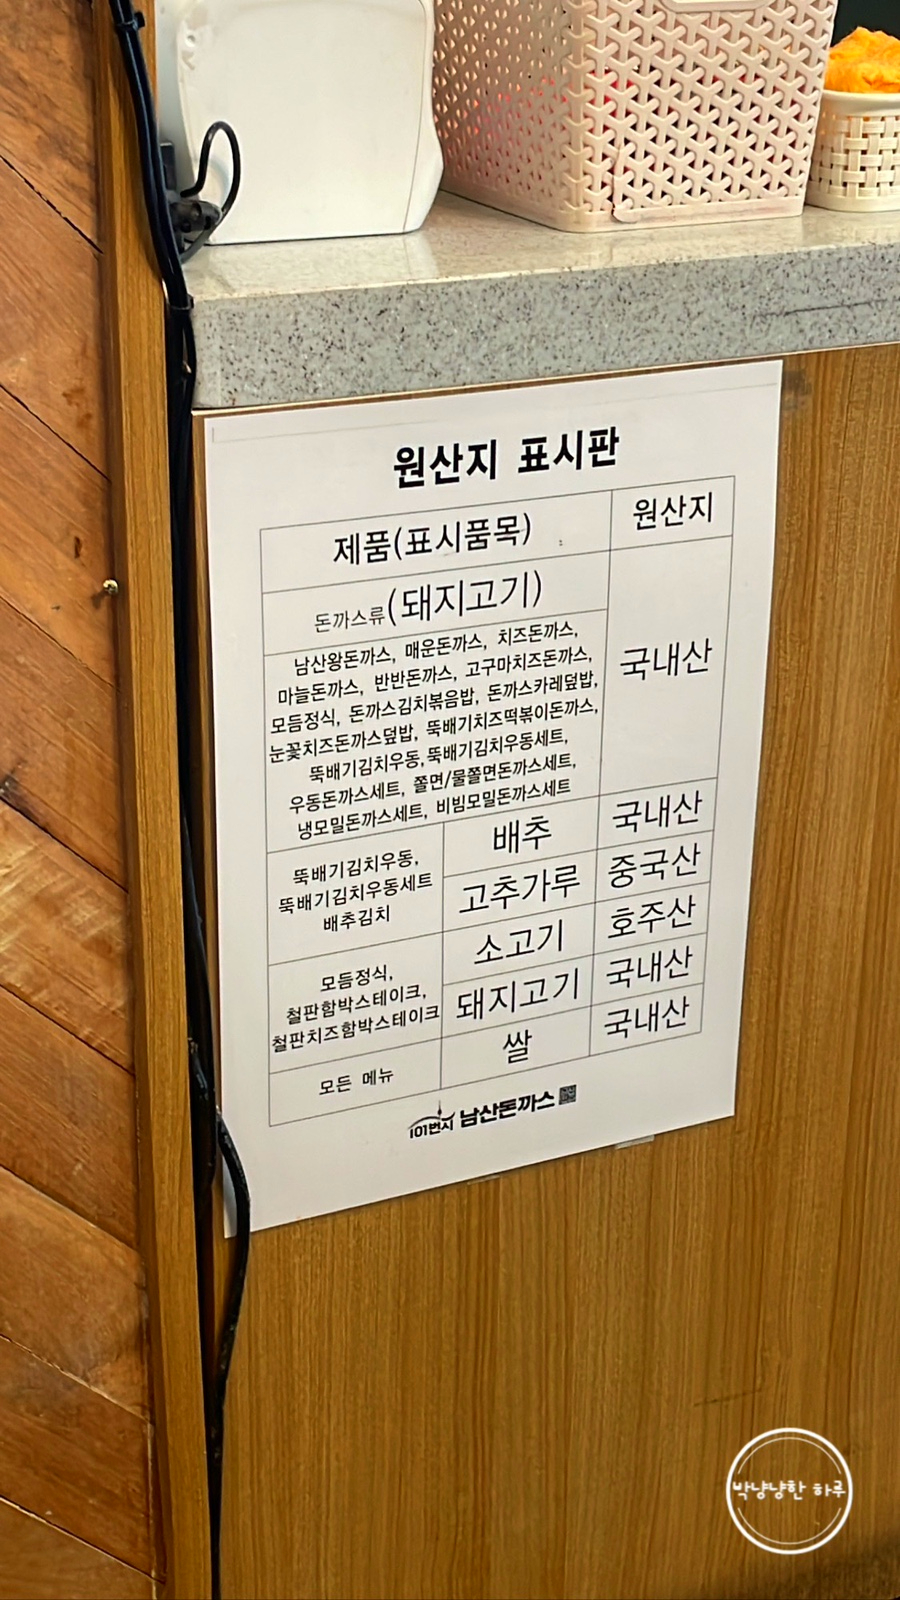 원산지 표시판
제품(표시품목) 원산지
돈까스류(돼지고기) 국내산
남산왕돈까스, 매운돈까스, 치즈돈까스,
마늘돈까스, 반반돈까스, 고구마치즈돈까스,
모듬정식, 돈까스김치볶음밥, 돈까스카레덮밥,
눈꽃치즈돈까스덮밥, 뚝배기치즈떡볶이돈까스,
뚝배기김치우동,뚝배기김치우동세트,
우동돈까스세트, 쫄면/물쫄면돈까스세트,
냉모밀돈까스세트, 비빔모밀돈까스세트
뚝배기김치우동,
뚝배기김치우동세트
배추김치
배추 국내산
고추가루 중국산
모듬정식,
철판함박스테이크,
철판치즈함박스테이크
소고기 호주산
돼지고기 국내산
모든 메뉴 쌀 국내산
101번지 남산돈까스
박냥냥한 하루